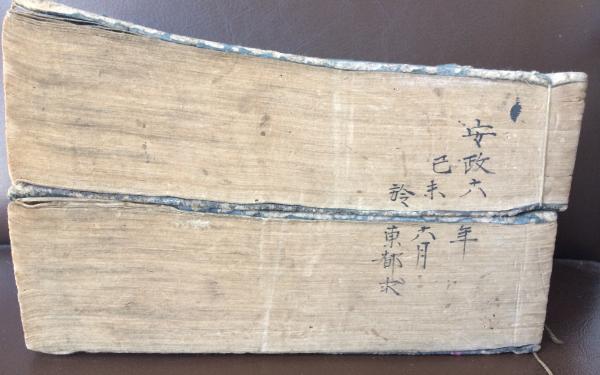 安政六年
己未六月
於東都求